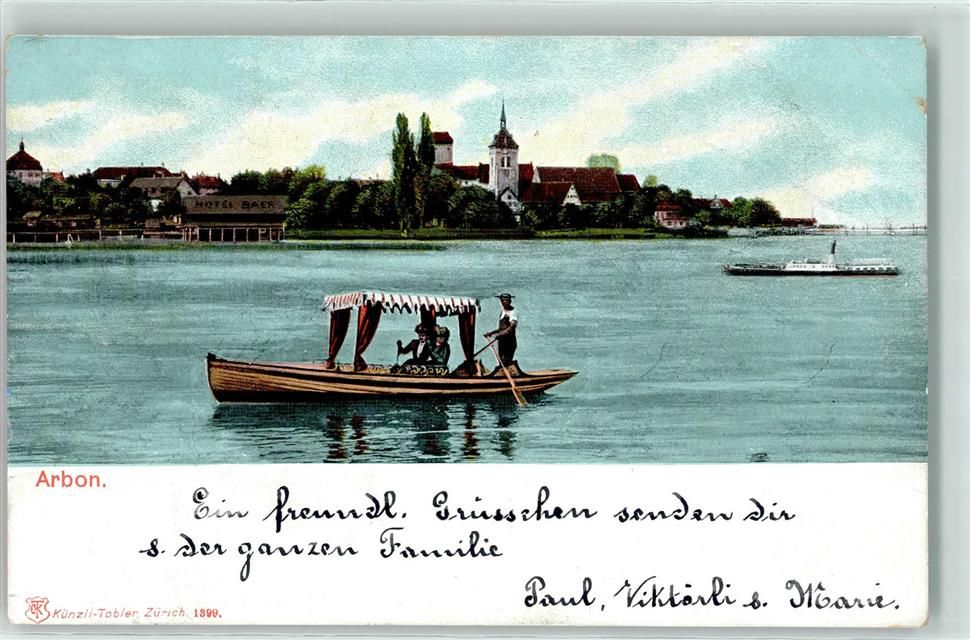 HOTEL BAER
Arbon.
Ein freundl. Grüsschen senden dir
s. der ganzen Familie
Paul, Viktörli s. Marie.
Künzli-Tobler, Zürich. 1399.